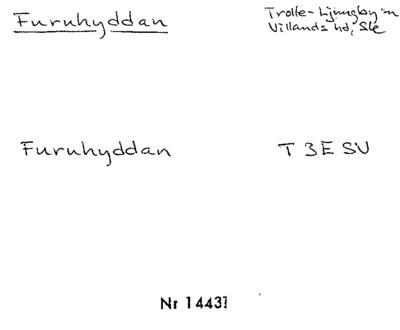 Furuhyddan
Trolle-Ljungby sn
Villands hd, Skå
Furuhyddan
T 3E SV
Nr 14431